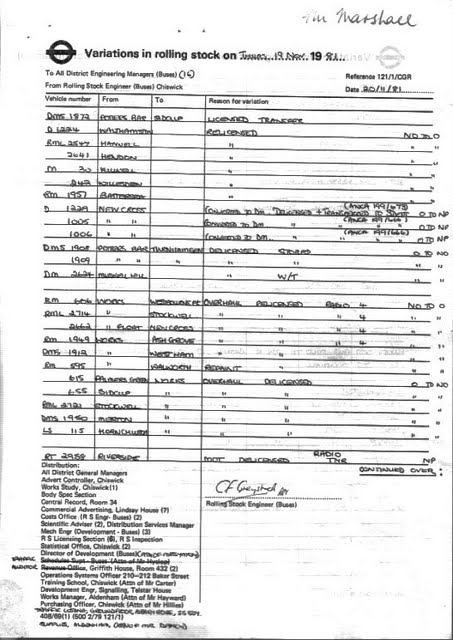 Tim Marshall
Variations in rolling stock on Thurs. 19 Nov. 1981.
To All District Engineering Managers (Buses)
Reference 121/1/CGR
From Rolling Stock Engineer (Buses) Chiswick
Date 20/11/81
Vehicle number From To Reason for variation
DMS 1872 POTTERS BAR SIDCUP LICENSED TRANSFER
D 1224 WALTHAMSTOW RELICENSED NO TO O
RML 2547 HANWELL " " "
2641 HENDON " " "
M 30 " "
242 WILLESDEN " " "
RM 1957 BATTERSEA " " "
D 1229 NEW CROSS CONVERTED TO DM DELICENSED + TRANSFERRED TO O TO NP
1005 " " CONVERTED TO DM O TO NP
1006 " " CONVERTED TO DM O TO NP
DMS 1908 POTTERS BAR TWICKENHAM DELICENSED STORED O TO NO
1909 " " " " " " "
DM 2624 MUSWELL HILL W/T
RM 606 WORKS WESTBOURNE PK OVERHAUL RELICENSED RADIO 4 NO TO O
RML 2714 " STOCKWELL " " " 4 " "
2662 " FLOAT NEW CROSS " " " 4 " "
RM 1949 WORKS ASH GROVE " " " 4 " "
DMS 1912 " WEST HAM " " " "
RM 595 " WALWORTH REPAINT " " "
615 PALMERS GREEN WORKS OVERHAUL DELICENSED O TO NO
655 SIDCUP " " " " "
RML 2721 STOCKWELL " " " " "
DMS 1950 MERTON " " " " "
LS 115 HORNCHURCH " " " " "
RT 2958 RIVERSIDE NOT DELICENSED RADIO NP
CONTINUED OVER:
Distribution:
All District General Managers
Advert Controller, Chiswick
Works Study, Chiswick (1)
Body Spec Section
Central Record, Room 34
Commercial Advertising, Lindsay House (7)
Costs Office (R S Engr- Buses) (2)
Rolling Stock Engineer (Buses)
Scientific Adviser (2), Distribution Services Manager
Mech Engr (Development - Buses) (3)
R S Licensing Section (6), R S Inspection
Statistical Office, Chiswick (2)
Director of Development (Buses)
Schedules Supt - Buses (Attn of Mr Hyslop)
Revenue Office, Griffith House, Room 432 (2)
Operations Systems Officer 210–212 Baker Street
Training School, Chiswick (Attn of Mr Carter)
Development Engr, Signalling, Telstar House
Works Manager, Aldenham (Attn of Mr Hayward)
Purchasing Officer, Chiswick (Attn of Mr Hillies)
408/69(1) (500 2/79 121/1)